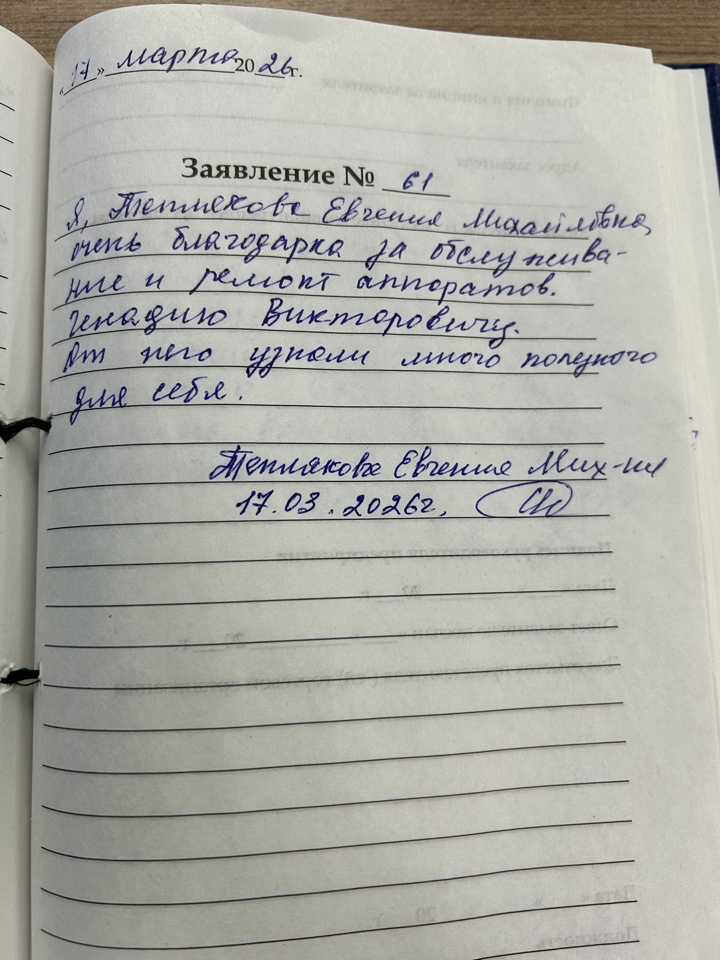 «17» марта 2026 г.
Заявление № 61
Я, Теплякова Евгения Михайловна,
очень благодарна за обслужива-
ние и ремонт аппаратов.
Генадию Викторовичу.
От него узнали много полезного
для себя.
Теплякова Евгения Мих-на
17.03.2026г.